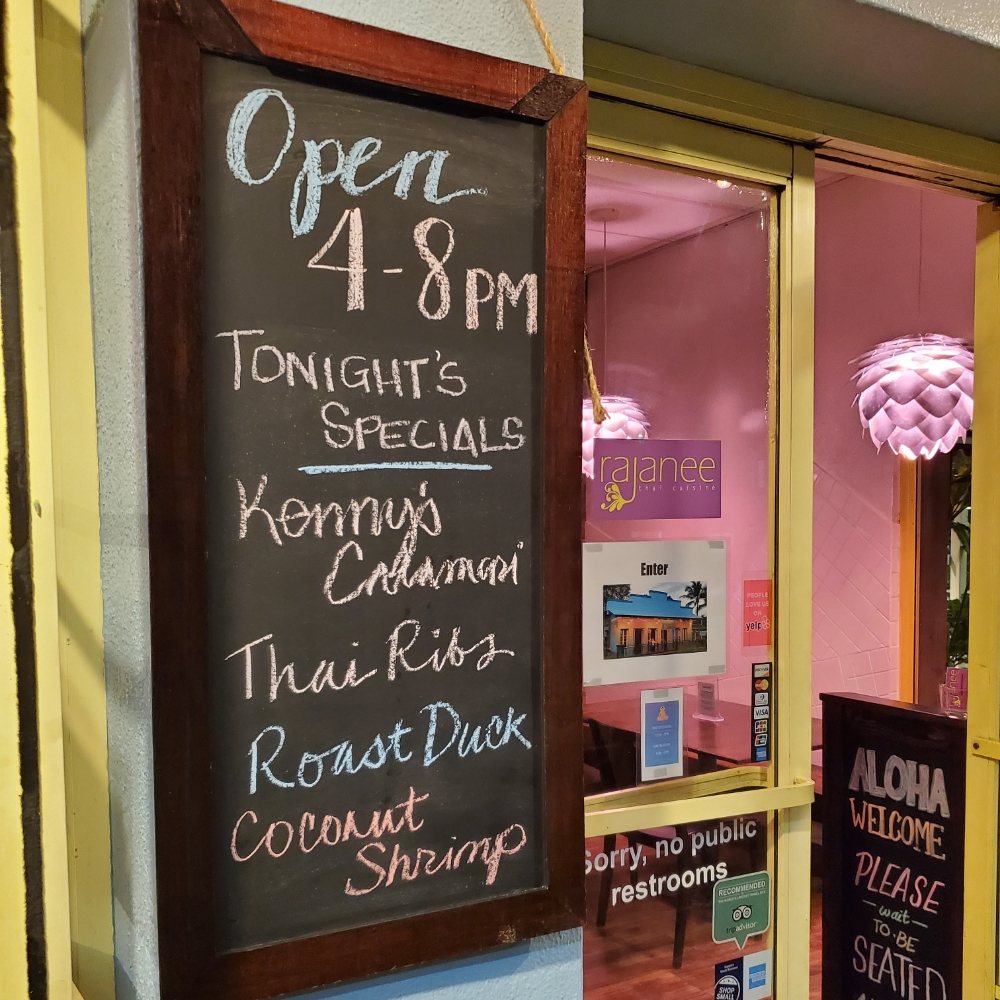 Open
4-8PM
TONIGHT'S
SPECIALS
Kenny's
Calamari
Thai Ribs
Roast Duck
Coconut
Shrimp
rajanee
thai cuisine
Enter
PEOPLE
LOVE US
ON
yelp
VISA
Sorry, no public
restrooms
RECOMMENDED
tripadvisor
SHOP
SMALL
ALOHA
WELCOME
PLEASE
wait
TO BE
SEATED